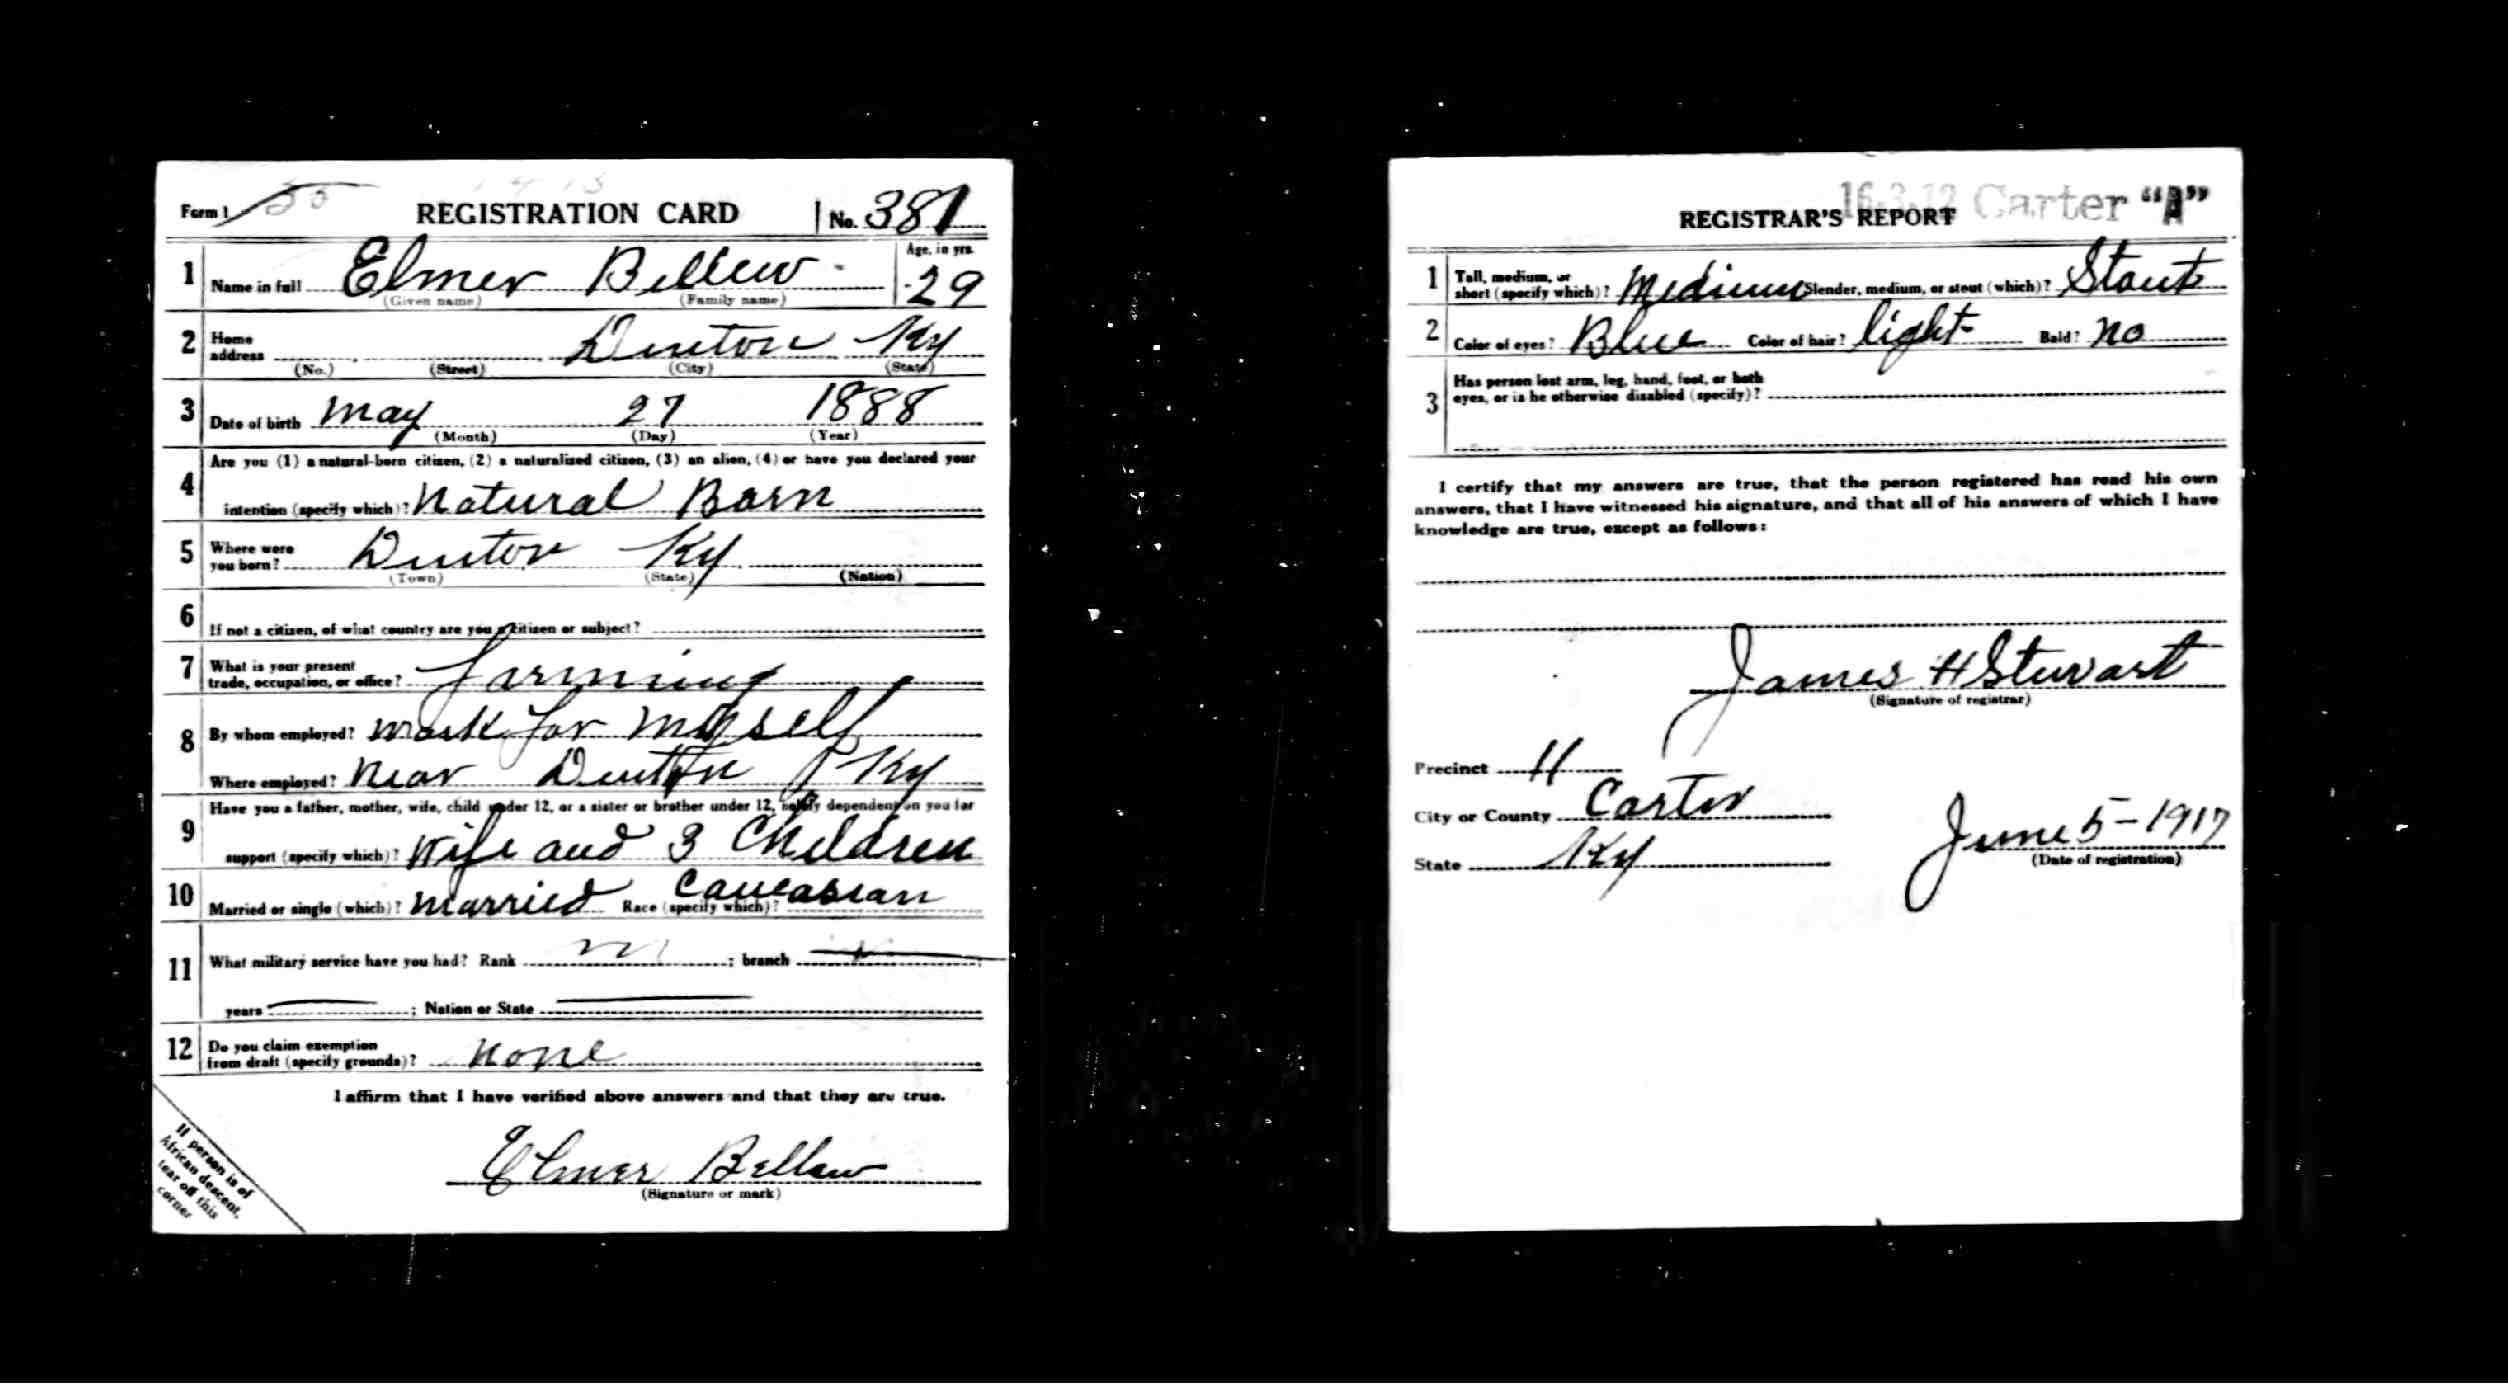 Form 1 REGISTRATION CARD No. 381
1 Name in full Elmer Bellew Age, in yrs. 29
(Given name) (Family name)
2 Home address Denton Ky
(No.) (Street) (City) (State)
3 Date of birth May 27 1888
(Month) (Day) (Year)
4 Are you (1) a natural-born citizen, (2) a naturalized citizen, (3) an alien, (4) or have you declared your
intention (specify which)? Natural Born
5 Where were you born? Denton Ky
(Town) (State) (Nation)
6 If not a citizen, of what country are you a citizen or subject?
7 What is your present trade, occupation, or office? farming
8 By whom employed? work for myself
Where employed? Near Denton Ky
9 Have you a father, mother, wife, child under 12, or a sister or brother under 12, solely dependent on you for
support (specify which)? Wife and 3 Children
10 Married or single (which)? Married Race (specify which)? Caucasian
11 What military service have you had? Rank ; branch ;
years ; Nation or State
12 Do you claim exemption from draft (specify grounds)? None
I affirm that I have verified above answers and that they are true.
Elmer Bellew
(Signature or mark)
If person is of
African descent,
tear off this
corner
16.3.12 Carter "A"
REGISTRAR'S REPORT
1 Tall, medium, or short (specify which)? Medium Slender, medium, or stout (which)? Stout
2 Color of eyes? Blue Color of hair? light Bald? No
3 Has person lost arm, leg, hand, foot, or both
eyes, or is he otherwise disabled (specify)?
I certify that my answers are true, that the person registered has read his own
answers, that I have witnessed his signature, and that all of his answers of which I have
knowledge are true, except as follows:
James H Stewart
(Signature of registrar)
Precinct 11
City or County Carter
State Ky
June 5-1917
(Date of registration)